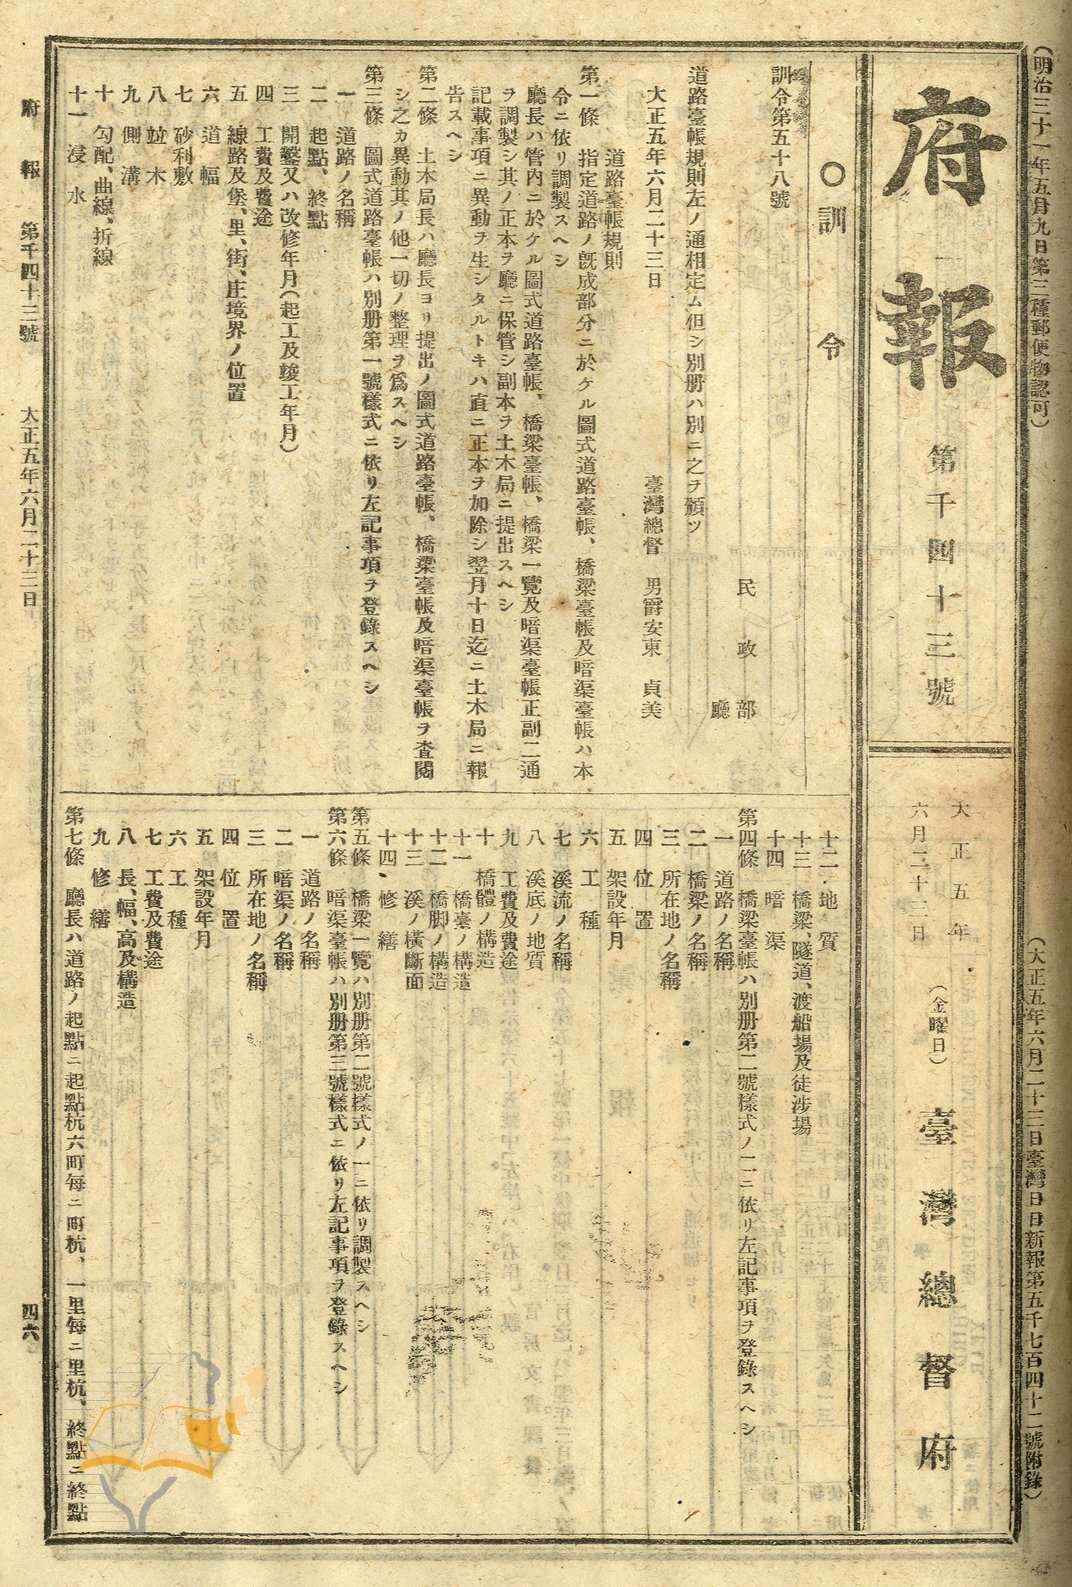 (明治三十一年五月九日第三種郵便物認可)
(大正五年六月二十三日臺灣日日新報第五千七百四十二號附錄)
府報
第千四十三號
大正五年
六月二十三日
(金曜日)
臺灣總督府
〇訓令
訓令第五十八號
民政部
廳
道路臺帳規則左ノ通相定ム但シ別册ハ別ニ之ヲ頒ツ
大正五年六月二十三日
臺灣總督 男爵安東 貞美
道路臺帳規則
第一條 指定道路ノ旣成部分ニ於ケル圖式道路臺帳、橋梁臺帳及暗渠臺帳ハ本
令ニ依リ調製スヘシ
廳長ハ管內ニ於ケル圖式道路臺帳、橋梁臺帳、橋梁一覽及暗渠臺帳正副二通
ヲ調製シ其ノ正本ヲ廳ニ保管シ副本ヲ土木局ニ提出スヘシ
記載事項ニ異動ヲ生シタルトキハ直ニ正本ヲ加除シ翌月十日迄ニ土木局ニ報
告スヘシ
第二條 土木局長ハ廳長ヨリ提出ノ圖式道路臺帳、橋梁臺帳及暗渠臺帳ヲ査閱
シ之カ異動其ノ他一切ノ整理ヲ爲スヘシ
第三條 圖式道路臺帳ハ別册第一號樣式ニ依リ左記事項ヲ登錄スヘシ
一 道路ノ名稱
二 起點、終點
三 開鑿又ハ改修年月(起工及竣工年月)
四 工費及費途
五 線路及堡、里、街、庄境界ノ位置
六 道幅
七 砂利敷
八 竝木
九 側溝
十 勾配、曲線、折線
十一 浸水
十二 地質
十三 橋梁、隧道、渡船場及徒涉場
十四 暗渠
第四條 橋梁臺帳ハ別册第二號樣式ノ一ニ依リ左記事項ヲ登錄スヘシ
一 道路ノ名稱
二 橋梁ノ名稱
三 所在地ノ名稱
四 位置
五 架設年月
六 工種
七 溪流ノ名稱
八 溪底ノ地質
九 工費及費途
十 橋體ノ構造
十一 橋臺ノ構造
十二 橋脚ノ構造
十三 溪ノ橫斷面
十四 修繕
第五條 橋梁一覽ハ別册第二號樣式ノ二ニ依リ調製スヘシ
第六條 暗渠臺帳ハ別册第三號樣式ニ依リ左記事項ヲ登錄スヘシ
一 道路ノ名稱
二 暗渠ノ名稱
三 所在地ノ名稱
四 位置
五 架設年月
六 工種
七 工費及費途
八 長、幅、高及構造
九 修繕
第七條 廳長ハ道路ノ起點ニ起點杭六町每ニ町杭、一里每ニ里杭、終點ニ終點
府報 第千四十三號 大正五年六月二十三日
四六